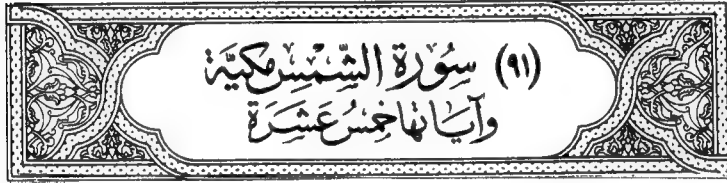 (٩١) سُورَة الشَّمْسِ مَكِيَّة
وَآيَاتهَا خَمْسُ عَشَرَة